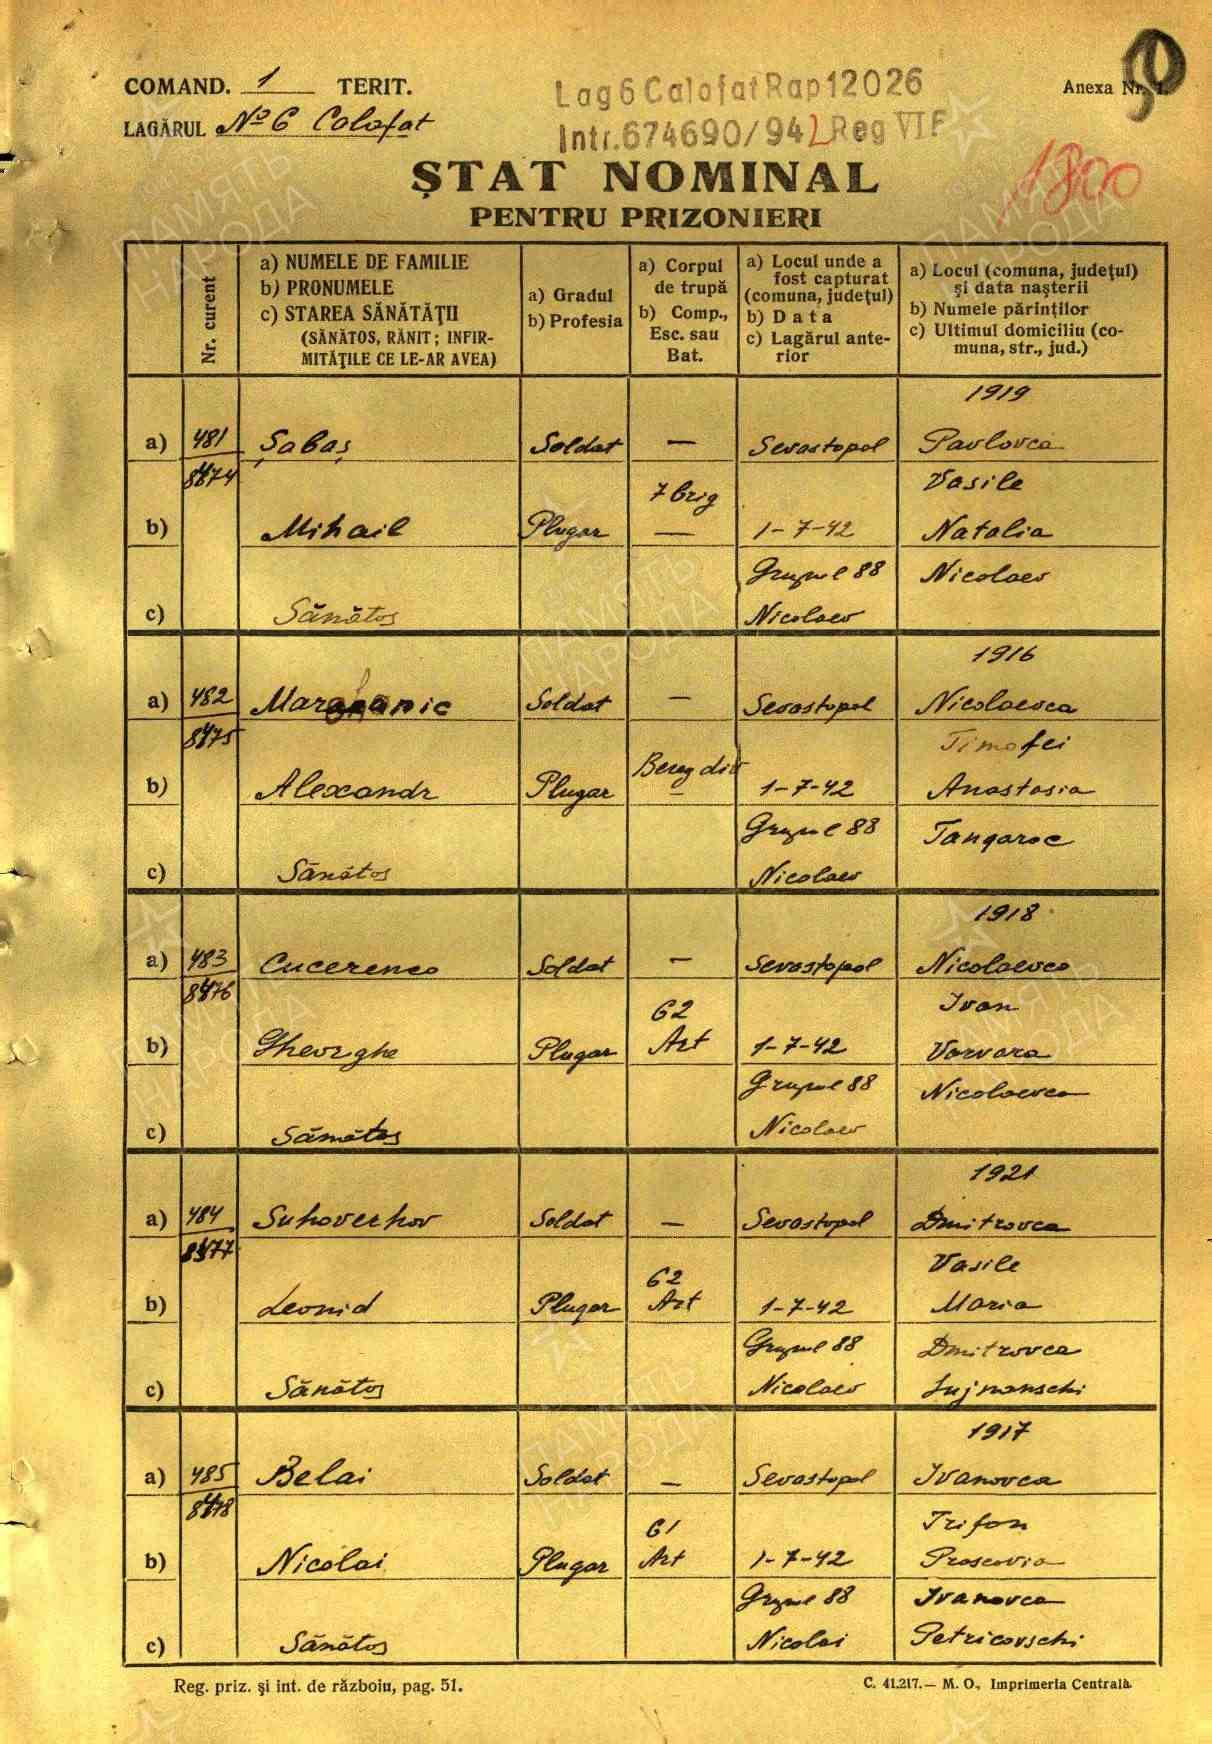 COMAND. 1 TERIT.
LAGĂRUL No 6 Calafat
Lag 6 Calafat Rap 12026
Intr. 674690/942 Reg VII F
Anexa Nr. 1.
1800
ŞTAT NOMINAL
PENTRU PRIZONIERI
Nr. curent
a) NUMELE DE FAMILIE
b) PRONUMELE
c) STAREA SĂNĂTĂŢII
(SĂNĂTOS, RĂNIT; INFIR-
MITĂŢILE CE LE-AR AVEA)
a) Gradul
b) Profesia
a) Corpul
de trupă
b) Comp.,
Esc. sau
Bat.
a) Locul unde a
fost capturat
(comuna, judeţul)
b) Data
c) Lagărul ante-
rior
a) Locul (comuna, judeţul)
şi data naşterii
b) Numele părinţilor
c) Ultimul domiciliu (co-
muna, str., jud.)
1919
a) 481 Şabaş Soldat — Sevastopol Pavlovca
8474 7 brig Vasile
b) Mihail Plugar — 1-7-42 Natalia
Grupul 88 Nicolaev
c) Sănătos Nicolaev
1916
a) 482 Soldat — Sevastopol Nicolaevca
8475 Timofei
b) Alexandr Plugar — 1-7-42 Anastasia
Grupul 88 Tangaroc
c) Sănătos Nicolaev
1918
a) 483 Cucerenco Soldat — Sevastopol Nicolaevca
8476 62 Ivan
b) Gheorghe Plugar Art 1-7-42 Varvara
Grupul 88 Nicolaevca
c) Sămătos Nicolaev
1921
a) 484 Suhoverhov Soldat — Sevastopol Dmitrovca
8477 62 Vasile
b) Leonid Plugar Art 1-7-42 Maria
Grupul 88 Dmitrovca
c) Sănătos Nicolaev Lujnanschi
1917
a) 485 Belai Soldat — Sevastopol Ivanovca
8478 61 Trifon
b) Nicolai Plugar Art 1-7-42 Proscovia
Grupul 88 Ivanovca
c) Sănătos Nicolai Petricovschi
Reg. priz. şi int. de războiu, pag. 51.
C. 41.217.— M. O., Imprimeria Centrală.
ПАМЯТЬ
НАРОДА